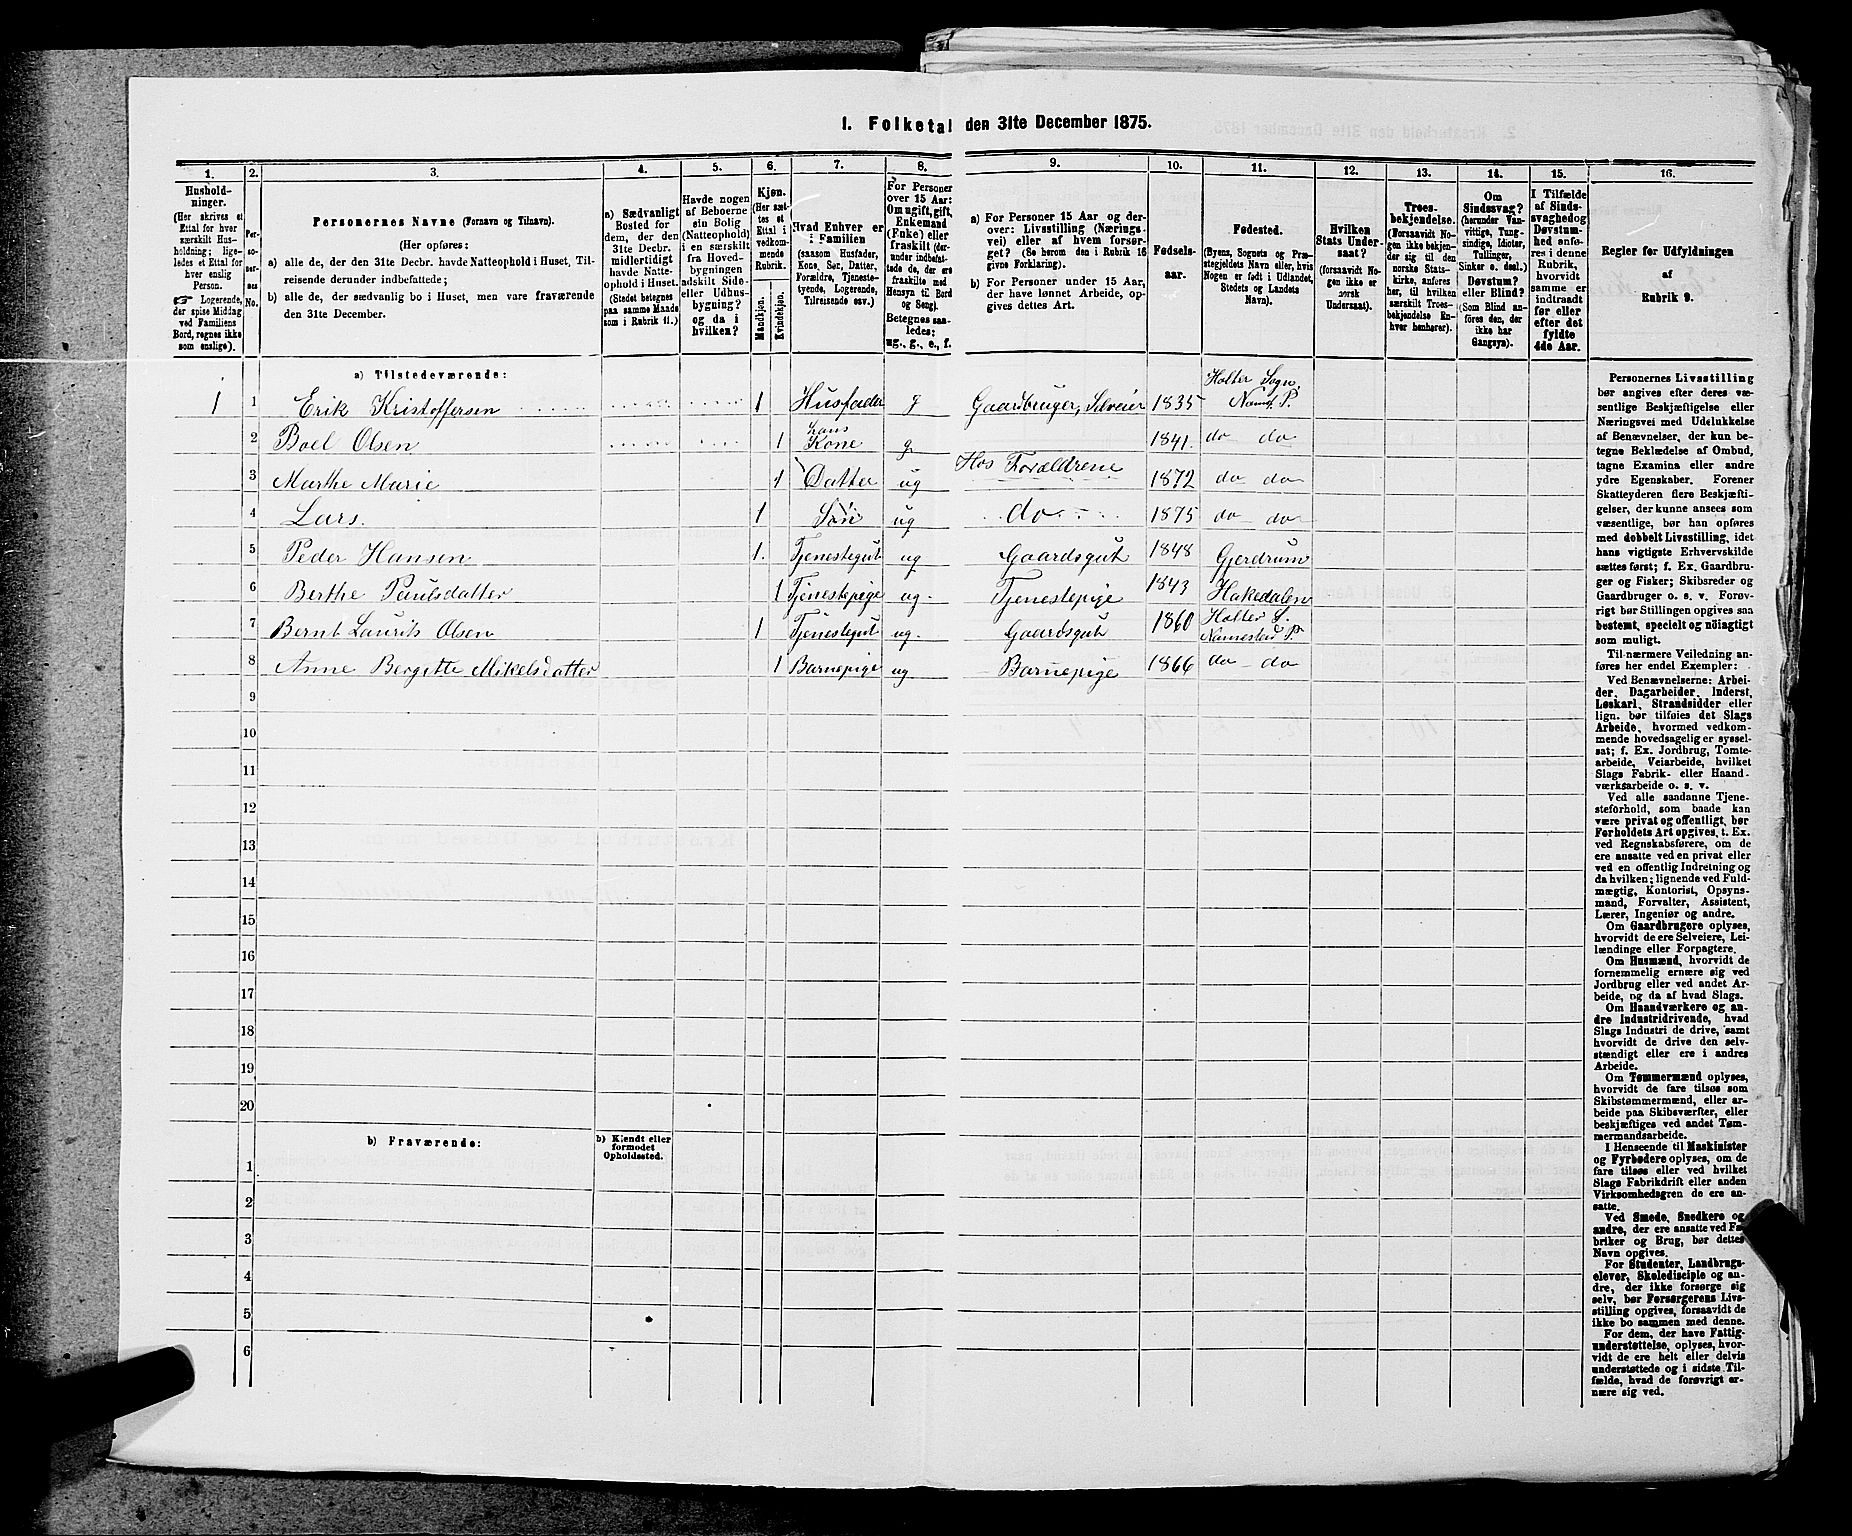 1. Folketal den 31te December 1875.
1.
2.
3.
4.
5.
6.
7.
8.
9.
10.
11.
12.
13.
14.
15.
16.
Hushold-
ninger.
(Her skrives et
Ettal for hver
særskilt Hus-
holdning; lige-
ledes et Ettal for
hver enslig
Person.
☞ Logerende,
der spise Middag
ved Familiens
Bord, regnes ikke
som enslige).
Per-
so-
ner-
nes
No.
Personernes Navne (Fornavn og Tilnavn).
(Her opføres:
a) alle de, der den 31te Decbr. havde Natteophold i Huset, Til-
reisende derunder indbefattede;
b) alle de, der sædvanlig bo i Huset, men vare fraværende
den 31te December.
a) Sædvanligt
Bosted for
dem, der den
31te Decbr.
midlertidigt
havde Natte-
ophold i Huset.
(Stedet betegnes
paa samme Maade
som i Rubrik 11.)
Havde nogen
af Beboerne
sin Bolig
(Natteophold)
i en særskilt
fra Hoved-
bygningen
adskilt Side-
eller Udhus-
bygning?
og da i
hvilken?
Kjøn.
(Her sæt-
tes et
Ettal i
vedkom-
mende
Rubrik.
Mandkjøn.
Kvindekjøn.
Hvad Enhver er
i Familien
(saasom Husfader,
Kone, Søn, Datter,
Forældre, Tjeneste-
tyende, Logerende,
Tilreisende osv.)
For Personer
over 15 Aar:
Om ugift, gift,
Enkemand
(Enke) eller
fraskilt (der-
under indbefat-
tede de, der ere
fraskilte med
Hensyn til Bord
og Seng).
Betegnes saa-
ledes:
ug., g., e., f.
a) For Personer 15 Aar og der-
over: Livsstilling (Nærings-
vei) eller af hvem forsør-
get? (Se herom den i Rubrik 16
givne Forklaring).
b) For Personer under 15 Aar,
der have lønnet Arbeide, op-
gives dettes Art.
Fødsels-
aar.
Fødested.
(Byens, Sognets og Præ-
stegjeldets Navn eller, hvis
Nogen er født i Udlandet,
Stedets og Landets
Navn).
Hvilken
Stats Under-
saat?
(forsaavidt No-
gen ikke er
norsk
Undersaat).
Troes-
bekjendelse.
(Forsaavidt No-
gen ikke bekjen-
der sig til den
norske Stats-
kirke, anføres
her, til hvilken
særskilt Troes-
bekjendelse En-
hver henhører).
Om
Sindssvag?
(herunder Van-
vittige, Tung-
sindige, Idioter,
Tullinger,
Sinker o. desl.)
Døvstum?
eller Blind?
(Som Blind an-
føres den, der
ikke har
Gangsyn).
I Tilfælde
af Sinds-
svaghed og
Døvstum-
hed anfø-
res i denne
Rubrik,
hvorvidt
samme er
indtraadt
før eller
efter det
fyldte
4de Aar.
Regler for Udfyldningen
af
Rubrik 9.
a) Tilstedeværende:
1 1 Erik Kristoffersen 1 Husfader g Gaardbruger, Selveier 1835 Holter Sogn, Næmf. P.
2 Boel Olsen 1 hans Kone g 1841. do do
3 Marthe Marie 1 Datter ug Hos Forældrene 1872 do do
4 Lars. 1 Søn ug do 1875 do do
5 Peder Hansen 1. Tjenestegut ug Gaardsgut 1848 Gjerdrum
6 Berthe Paulsdatter 1 Tjenestepige ug. Tjenestepige 1843 Hakedalen
7 Bernt Laurits Olsen 1 Tjenestegut ug. Gaardsgut 1860 Holter S. Nannestad P.
8 Anne Bergitte Mikelsdatter 1 Barnepige ug Barnepige 1866 do do
9
10
11
12
13
14
15
16
17
18
19
20
b) Fraværende:
b) Kjendt eller
formodet
Opholdssted.
1
2
3
4
5
6
Personernes Livsstilling
bør angives efter deres væ-
sentlige Beskjæftigelse eller
Næringsvei med Udelukkelse
af Benævnelser, der kun be-
tegne Beklædelse af Ombud,
tagne Examina eller andre
ydre Egenskaber. Forener
Skatteyderen flere Beskjæfti-
gelser, der kunne ansees som
væsentlige, bør han opføres
med dobbelt Livsstilling, idet
hans vigtigste Erhvervskilde
sættes først; f. Ex. Gaardbru-
ger og Fisker; Skibsreder og
Gaardbruger o. s. v. Forøv-
rigt bør Stillingen opgives saa
bestemt, specielt og nøiagtigt
som muligt.
Til nærmere Veiledning an-
føres her endel Exempler:
Ved Benævnelserne: Arbei-
der, Dagarbeider, Inderst,
Løskarl, Strandsidder eller
lign. bør tilføies det Slags
Arbeide, hvormed vedkom-
mende hovedsagelig er syssel-
sat; f. Ex. Jordbrug, Tomte-
arbeide, Veiarbeide, hvilket
Slags Fabrik- eller Haand-
værksarbeide o. s. v.
Ved alle saadanne Tjene-
steforhold, som baade kan
være privat og offentligt, bør
Forholdets Art opgives, t. Ex.
ved Regnskabsførere, om de
ere ansatte ved en privat eller
ved en offentlig Indretning og
da hvilken; lignende ved Fuld-
mægtig, Kontorist, Opsyns-
mand, Forvalter, Assistent,
Lærer, Ingeniør og andre.
Om Gaardbrugere oplyses,
hvorvidt de ere Selveiere, Lei-
lændinge eller Forpagtere.
Om Husmænd, hvorvidt de
fornemmelig ernære sig ved
Jordbrug eller ved andet Ar-
beide, og da af hvad Slags.
Om Haandværkere og an-
dre Industridrivende, hvad
Slags Industri de drive, samt
hvorvidt de drive den selv-
stændigt eller ere i andres
Arbeide.
Om Tømmermænd oplyses,
hvorvidt de fare tilsøs som
Skibstømmermænd, eller ar-
beide paa Skibsværfter, eller
beskjæftiges ved andet Tøm-
mermandsarbeide.
I Henseende til Maskinister
og Fyrbødere oplyses, om de
fare tilsøs eller ved hvilket
Slags Fabrikdrift eller anden
Virksomhedsgren de ere an-
satte.
Ved Smede, Snedkere og
andre, der ere ansatte ved Fa-
briker og Brug, bør dettes
Navn opgives.
For Studenter, Landbrugs-
elever, Skoledisciple og an-
dre, der ikke forsørge sig
selv, bør Forsørgerens Livs-
stilling opgives, forsaavidt de
ikke bo sammen med denne.
For dem, der have Fattig-
understøttelse, oplyses, hvor-
vidt de ere helt eller delvis
understøttede og i sidste Til-
fælde, hvad de forøvrigt er-
nære sig ved.